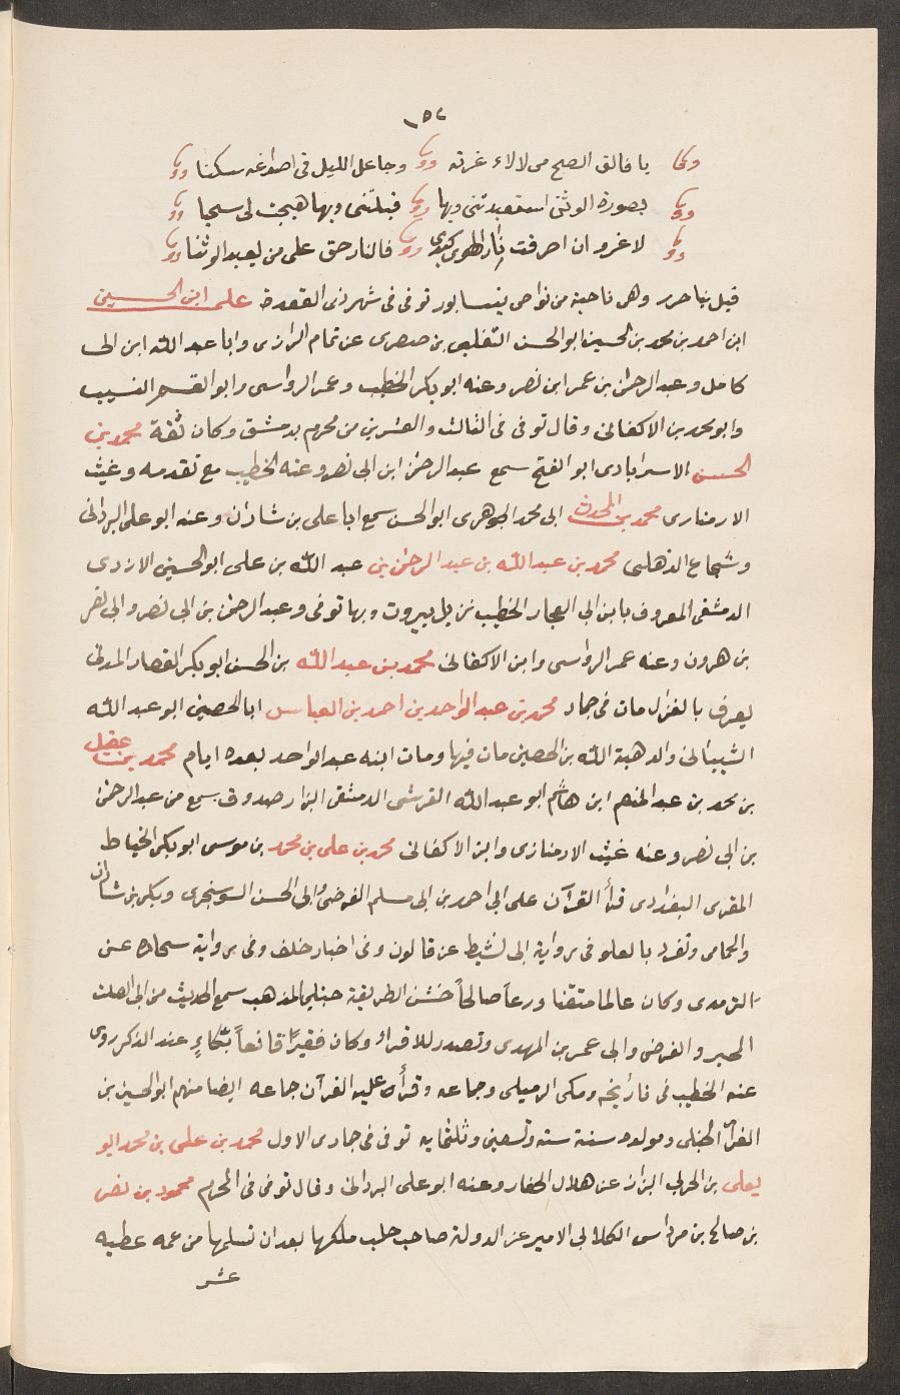 ١٥٢
يا فالق الصبح من لالاء غرته وجاعل الليل فى اصداغه سكنا
بصورة الوثن استعبدتنى وبها فتلتنى وبها هيجت لى شجنا
لا غرو ان احرقت نار الهوى كبدى فالنار حق على من يعبد الوثنا
قيل بباخرز وهى ناحية من نواحى نيسابور توفى فى شهر ذى القعدة على ابن الحسين
ابن احمد بن محمد بن الحسين ابو الحسن التغلبى بن صصرى عن تمام الرازى وابا عبد الله ابن ابى
كامل وعبد الرحمن بن عمر ابن نصر وعنه ابو بكر الخطيب وعمر الرواسى وابو القسم النسيب
وابو محمد بن الاكفانى وقال توفى فى الثالث والعشرين من محرم بدمشق وكان ثقة محمد بن
الحسن الاسترابادى ابو الفتح سمع عبد الرحمن ابن ابى نصر وعنه الخطيب مع تقدمه وغيث
الارمنازى محمد بن المحدث ابى محمد الجوهرى ابو الحسن سمع ابا على بن شاذان وعنه ابو على البردانى
وشجاع الذهلى محمد بن عبد الله بن عبد الرحمن بن عبد الله بن على ابو الحسين الازدى
الدمشقى المعروف بابن ابى العجار الخطيب نزيل بيروت وبها توفى وعبد الرحمن بن ابى نصر وابى نصر
بن هرون وعنه عمر الرواسى وابن الاكفانى محمد بن عبد الله بن الحسن ابو بكر القصار المدنى
يعرف بالغزال مات فى جماد محمد بن عبد الواحد بن احمد بن العباس ابا الحصين ابو عبد الله
الشيبانى والد هبة الله بن الحصين مات فيها ومات ابنه عبد الواحد بعده ايام محمد بن عقيل
بن محمد بن عبد المنعم ابن هاشم ابو عبد الله القرشى الدمشقى البزار صدوق سمع من عبد الرحمن
بن ابى نصر وعنه غيث الارمنازى وابن الاكفانى محمد بن على بن محمد بن موسى ابو بكر الخياط
المقرى البغدادى قرأ القرآن على ابى احمد بن ابى مسلم الفرضى وابى الحسن السوسنجردى وبكر بن شاذان
والحمامى وتفرد بالعلو فى رواية ابى نشيط عن قالون وفى اختيار خلف وفى رواية سجاده عن
اليزيدى وكان عالما متقنا ورعاً صالحاً خشن الطريقة حنبلى المذهب سمع الحديث من ابى الصلت
المجبر والفرضى وابى عمر بن المهدى وتصدر للاقراء وكان فقيرًا قانعاً بكاءٍ عند الذكر روى
عنه الخطيب فى تاريخه ومكى الرميلى وجماعه وقرأه عليه القرآن جماعه ايضا منهم ابو الحسين بن
الفراء الحنبلى ومولده سنة ستة وتسعين وثلثمايه توفى فى جمادى الاول محمد بن على بن محمد ابو
يعلى بن الحربى البزاز عن هلال الحفار وعنه ابو على البردانى وقال توفى فى المحرم محمود بن نصر
بن صالح بن مرداس الكلابى الامير عز الدولة صاحب حلب ملكها بعد ان تسلمها من عمه عطيه
عشر